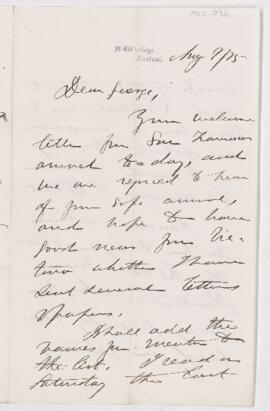 ACC. 736
McGill College,
Montreal.
Aug 9/75
Dear George,
Your welcome
letter from San Francisco
arrived to-day, and
we are rejoiced to hear
of your safe arrival,
and hope to have
good news from Vic-
toria whither I have
sent several letters
& papers,
I shall add the
names you mention to
the list, I read on
Saturday the last